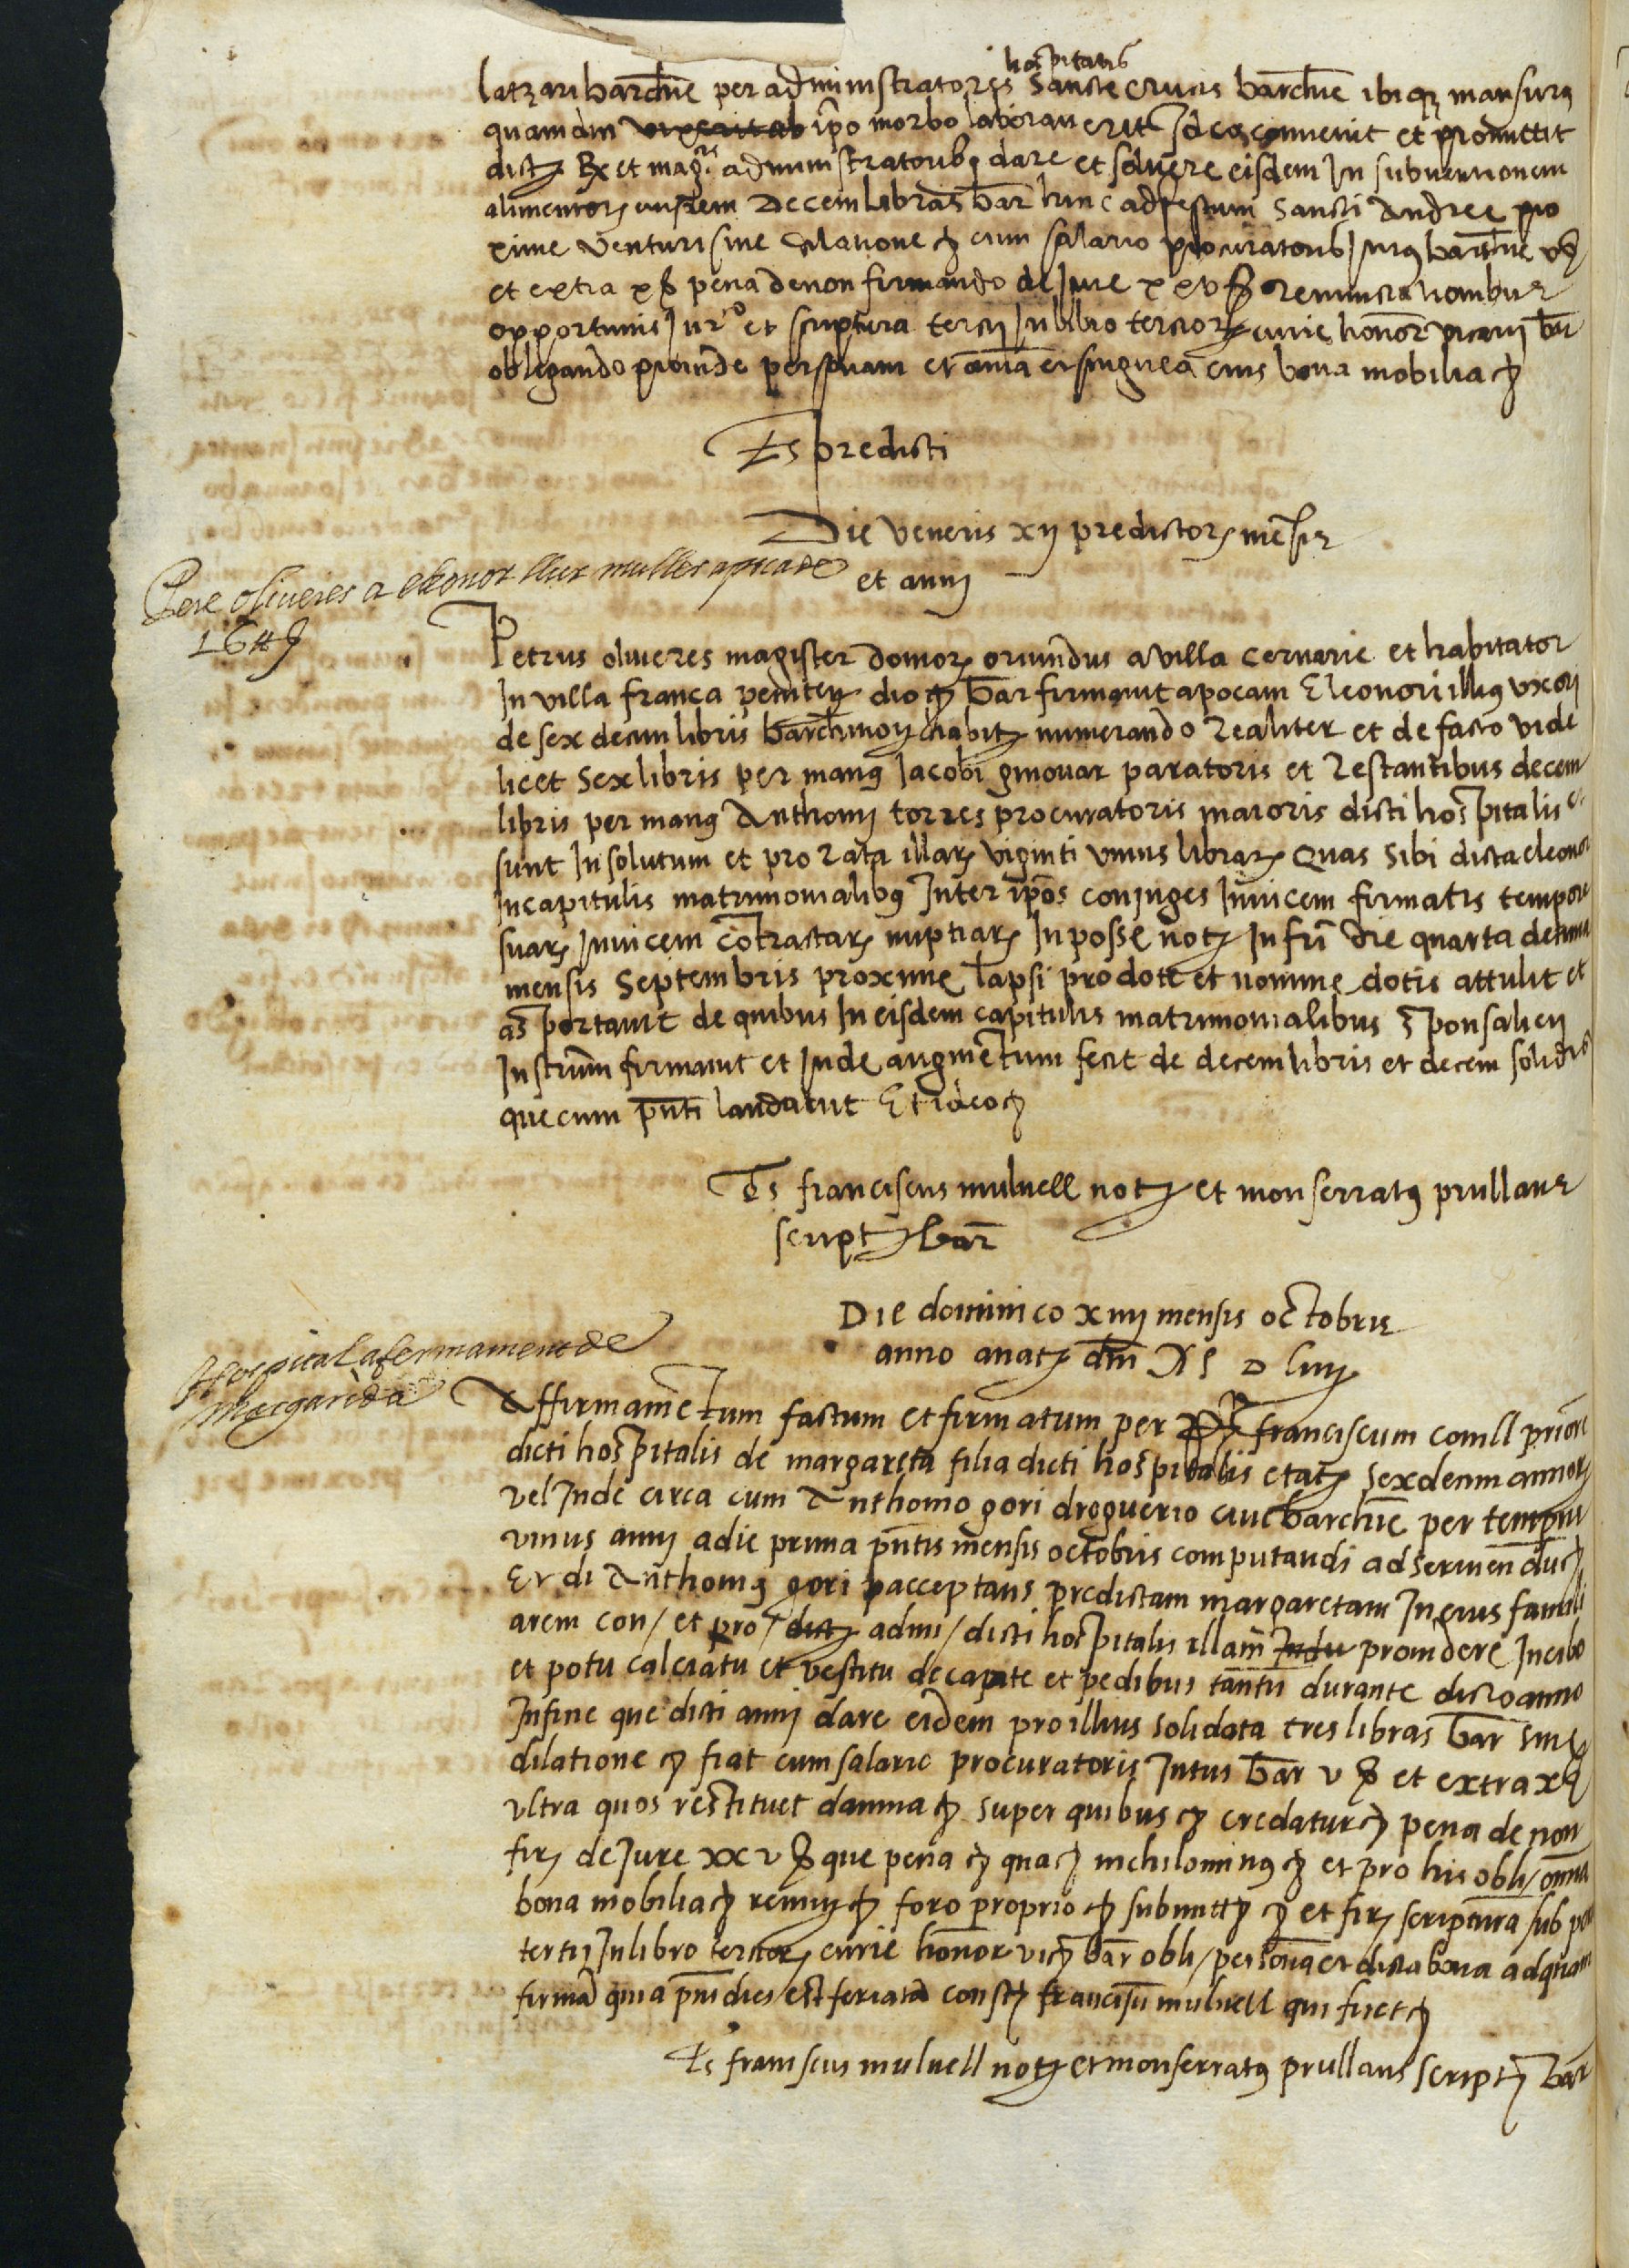 hospitalis
latzari barchne per administratores sancte crucis barchne ibiq mansurꝯ
quamdiu ipo morbo laboraverit Ideo convenit et promittit
dictꝭ Rx et magcis administratoribꝯ dare et solvere eisdem In subventionem
alimentorꝝ eiusdem decem libras bar hinc ad festum sancti Andree pro
xime venturi sine dilatione ꝛc cum salario procuratoris Intꝯ barchne vß
et extra xß pena de non firmando de Iure xxvß renunciationibus
opportunis Iurº et scriptura tercij In libro terciorꝝ curie honor vicarij bar
obligando proinde personam et omia et singula eius bona mobilia ꝛc
Ts predicti
Die veneris xij predictorꝝ mensis
et anni
Pere oliveres a elionor llur muller apocade
Petrus oliveres magister domorꝝ oriundus a villa cervarie et habitator
In villa franca peniteñ dioꝛc bar firmavit apocam Eleonori illiꝯ uxori
de sexdecim libris barchinoñ habitꝭ numerando realiter et de facto vide
licet sex libris per manꝯ Iacobi ginovar paratoris et restantibus decem
libris per manꝯ Anthonij torres procuratoris maioris dicti hospitalis et
sunt In solutum et pro rata illarꝝ viginti unius librarꝝ Quas sibi dicta eleonor
In capitulis matrimonialibꝯ Inter ipos coniuges Invicem firmatis tempore
suarꝝ Invicem cotractarꝝ nuptiarꝝ In posse notꝭ Infri die quarta decima
mensis Septembris proxime lapsi pro dote et nomine dotis attulit et
asportavit de quibus In eisdem capitulis matrimonialibus sponsalicij
Instrum firmavit et Inde augmetum fecit de decem libris et decem solidis
que cum pnti laudavit Et ideo ꝛc
Ts franciscus mulnell notꝭ et monserratꝯ prullans
scriptꝭ bar
Die dominico xiiij mensis octobris
anno anatꝭ dni M D liiij
Hospital afermament de
Margarida
Affirmametum factum et firmatum per franciscum comll priore
dicti hospitalis de margareta filia dicti hospitalis etatꝭ sexdecim annorꝝ
vel Inde circa cum Anthonio gori droguerio cive barchne per tempus
unius anni a die prima pntis mensis octobris computandi ad serviendũ ꝛc
Et di Anthoniꝯ gori acceptans predictam margaretam In eius famili
arem con/ et pro/ admi/ dicti hospitalis illam providere In cibo
et potu calciatu et vestitu de capite et pedibus tantu durante dicto anno
In fine que dicti anni dare eidem pro illius solidata tres libras bar sine
dilatione ꝛc fiat cum salario procuratoris Intus bar vß et extra xß
ultra quos restituet damna ꝛc super quibus ꝛc credatur ꝛc pena de non
firꝝ de Iure xxvß que pena ꝛc qua ꝛc nichilominꝯ ꝛc et pro his obli/ omia
bona mobilia ꝛc renuꝭ ꝛc foro proprio ꝛc submittꝭ ꝛc et firꝝ scriptura sub pena
tertij In libro terciorꝝ curie honor vicꝭ bar obli/ persona et dicta bona ad quam
firma quia pnt dies est feriata constꝭ francisu mulnell qui fuet ꝛc
Ts franciscus mulnell notꝭ et monserratꝯ prullans scriptꝭ bar